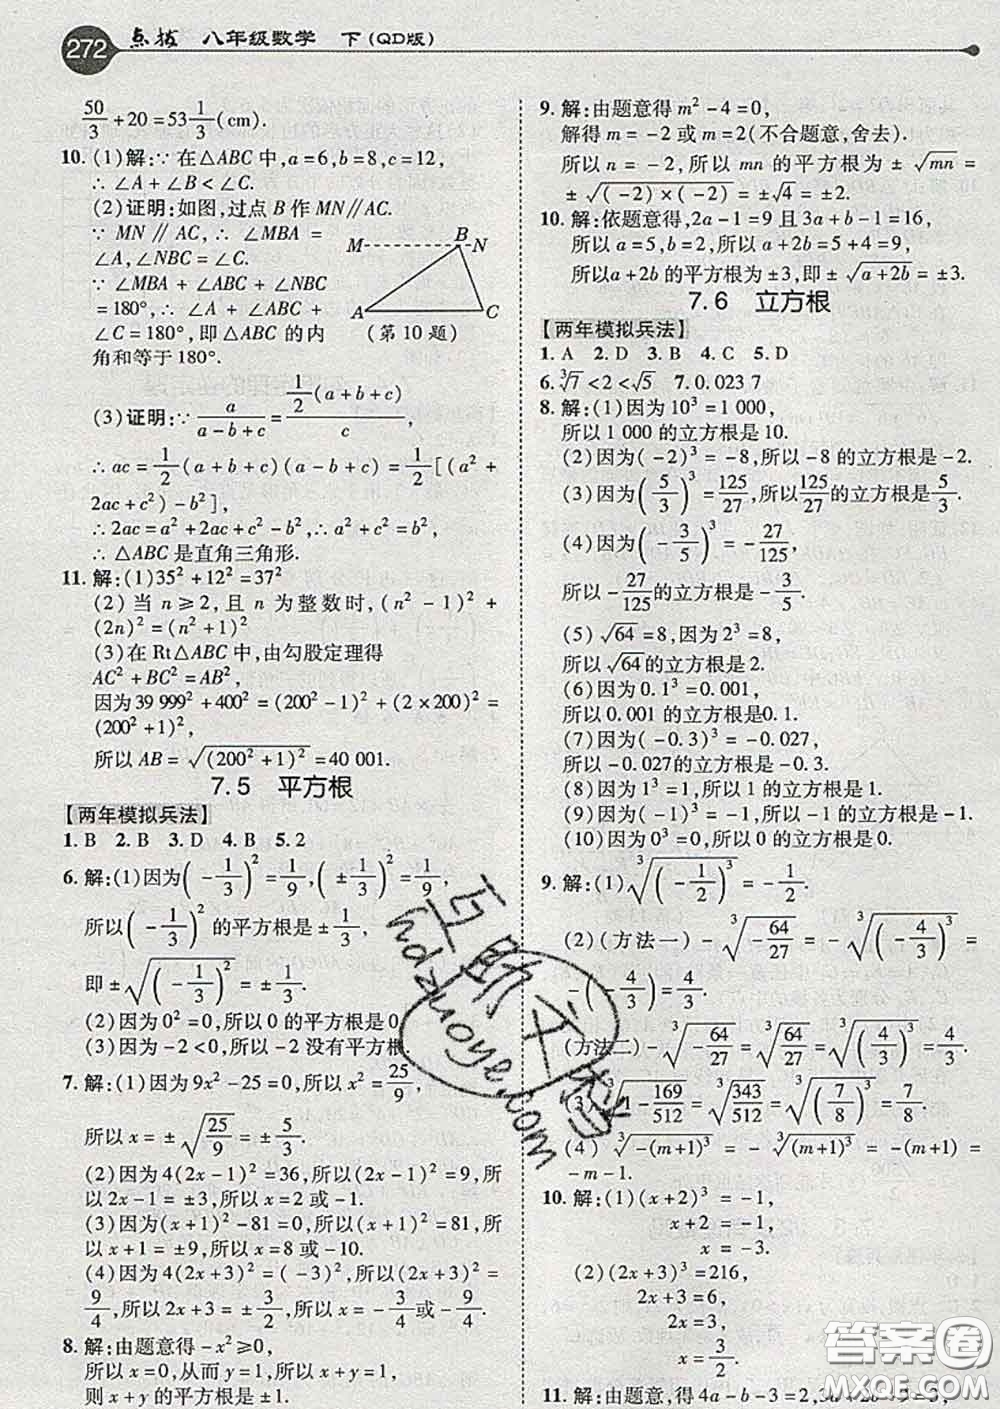 272 点拨 八年级数学 下(QD版)
50/3+20=53 1/3(cm).
10. (1)解:∵在△ABC中,a=6,b=8,c=12,
∴∠A+∠B<∠C.
(2)证明:如图,过点B作MN∥AC.
∵ MN∥AC,∴∠MBA=
∠A,∠NBC=∠C.
∵∠MBA+∠ABC+∠NBC
=180°,∴∠A+∠ABC+
∠C=180°,即△ABC的内
角和等于180°.
M B N
A C
(第10题)
(3)证明:∵a/(a-b+c)=(1/2(a+b+c))/c,
∴ac=1/2(a+b+c)(a-b+c)=1/2[(a²+
2ac+c²)-b²],
∴2ac=a²+2ac+c²-b²,∴a²+c²=b²,
∴△ABC是直角三角形.
11. 解:(1)35²+12²=37²
(2)当n≥2,且n为整数时,(n²-1)²+
(2n)²=(n²+1)²
(3)在Rt△ABC中,由勾股定理得
AC²+BC²=AB²,
因为39 999²+400²=(200²-1)²+(2×200)²=
(200²+1)²,
所以AB=√((200²+1)²)=40 001.
7.5 平方根
【两年模拟兵法】
1. B 2. B 3. D 4. B 5. 2
6. 解:(1)因为(-1/3)²=1/9,(±1/3)²=1/9,
所以(-1/3)²的平方根是±1/3,
即±√((-1/3)²)=±1/3.
(2)因为0²=0,所以0的平方根是0
(3)因为-2<0,所以-2没有平方根
7. 解:(1)因为9x²-25=0,所以x²=25/9,
所以x=±√(25/9)=±5/3.
(2)因为4(2x-1)²=36,所以(2x-1)²=9,所以
2x-1=±3,所以x=2或-1.
(3)因为(x+1)²-81=0,所以(x+1)²=81,所
以x+1=±9,所以x=8或-10.
(4)因为4(2x+3)²=(-3)²,所以(2x+3)²=
9/4,所以2x+3=±3/2,所以x=-3/4或-9/4.
8. 解:由题意得-x²≥0,
所以x=0,从而y=1,所以x+y=1,
则x+y的平方根是±1.
9. 解:由题意得m²-4=0,
解得m=-2或m=2(不合题意,舍去).
所以n=-2,所以mn的平方根为±√(mn)=
±√((-2)×(-2))=±√4=±2.
10. 解:依题意得,2a-1=9且3a+b-1=16,
所以a=5,b=2,所以a+2b=5+4=9,
所以a+2b的平方根为±3,即±√(a+2b)=±3.
7.6 立方根
【两年模拟兵法】
1. A 2. D 3. B 4. C 5. D
6. ∛7<2<√5 7. 0.023 7
8. 解:(1)因为10³=1 000,
所以1 000的立方根是10.
(2)因为(-2)³=-8,所以-8的立方根是-2.
(3)因为(5/3)³=125/27,所以125/27的立方根是5/3.
(4)因为(-3/5)³=-27/125,
所以-27/125的立方根是-3/5.
(5)√64=8,因为2³=8,
所以√64的立方根是2.
(6)因为0.1³=0.001,
所以0.001的立方根是0.1.
(7)因为(-0.3)³=-0.027,
所以-0.027的立方根是-0.3.
(8)因为1³=1,所以1的立方根是1.
(9)因为(-1)³=-1,所以-1的立方根是-1.
(10)因为0³=0,所以0的立方根是0.
9. 解:(1)∛((-1/2)³)=-1/2.
(2)(方法一)-∛(-64/27)=-∛((-4/3)³)=
-(-4/3)=4/3.
(方法二)-∛(-64/27)=∛(64/27)=∛((4/3)³)=4/3.
(3)∛(1-169/512)=∛(343/512)=∛((7/8)³)=7/8.
(4)∛(-(m+1)³)=-∛((m+1)³)=-(m+1)=
-m-1.
10. 解:(1)(x+2)³=-1,
x+2=-1,
x=-3.
(2)(2x+3)³=216,
2x+3=6,
2x=3,
x=3/2.
11. 解:由题意,得4a-b-3=2,
互助文档
hdzuoye.com
答案圈
MXQE.COM